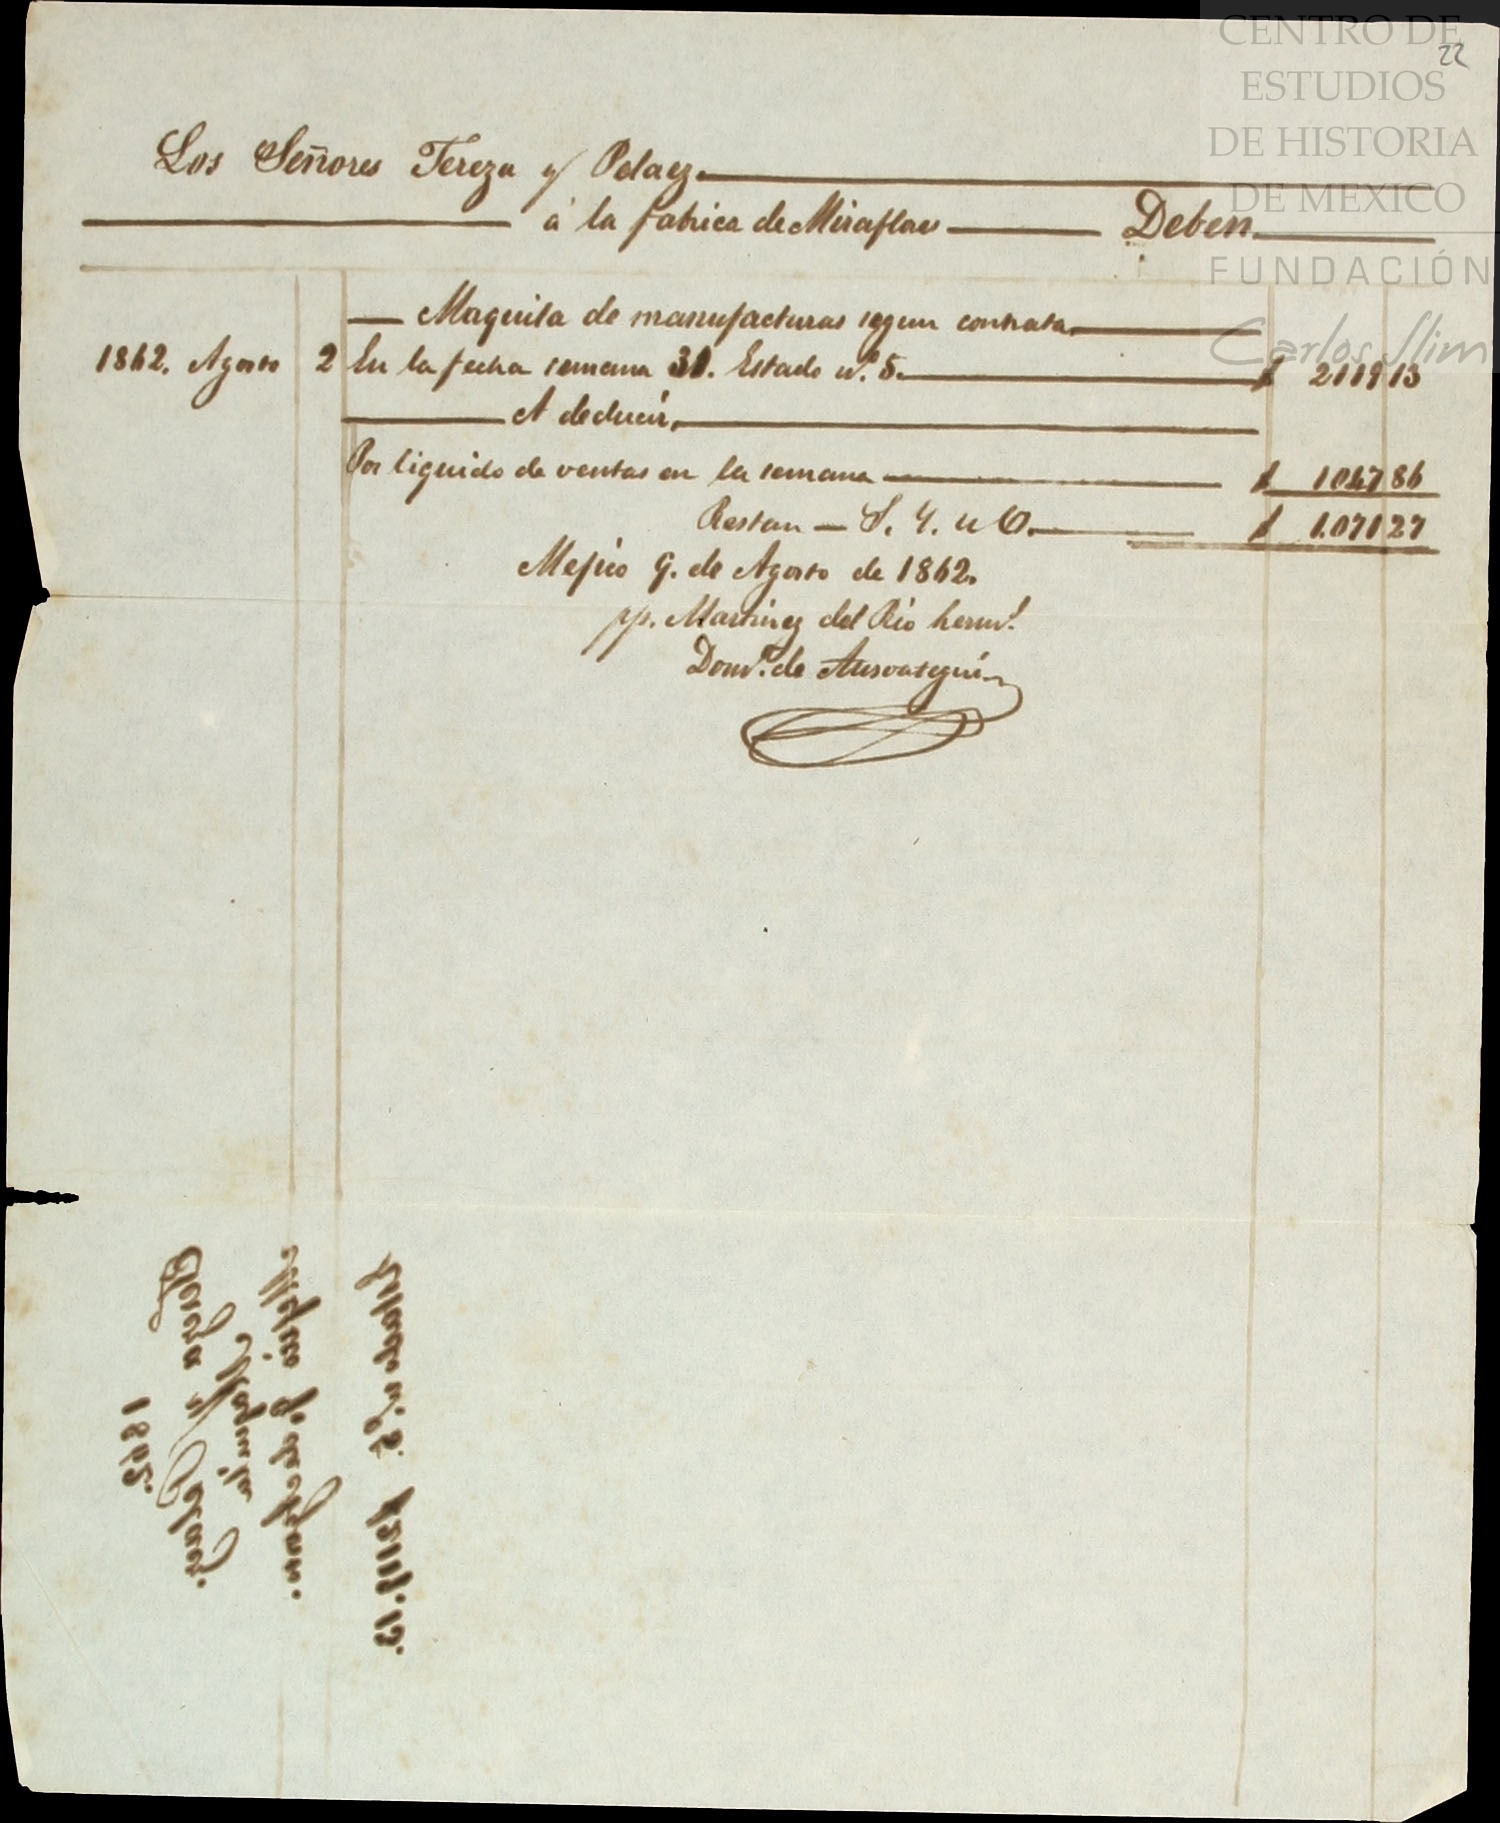 CENTRO DE
ESTUDIOS
DE HISTORIA
DE MEXICO
FUNDACIÓN
Carlos Slim
22
Los Señores Tereza y Pelaez
á la fabrica de Miraflores Deben
Maquila de manufacturas segun contrata
1862. Agosto 2 En la fecha semana 31. Estado nº 5. $ 2119 13
A deducir,
Por liquido de ventas en la semana $ 1047 86
Restan — S. Y. u O. $ 1.071 27
Mejico 9. de Agosto de 1862.
pp. Martinez del Rio herms.
Domº. de
$2119.13
Mejico
1862